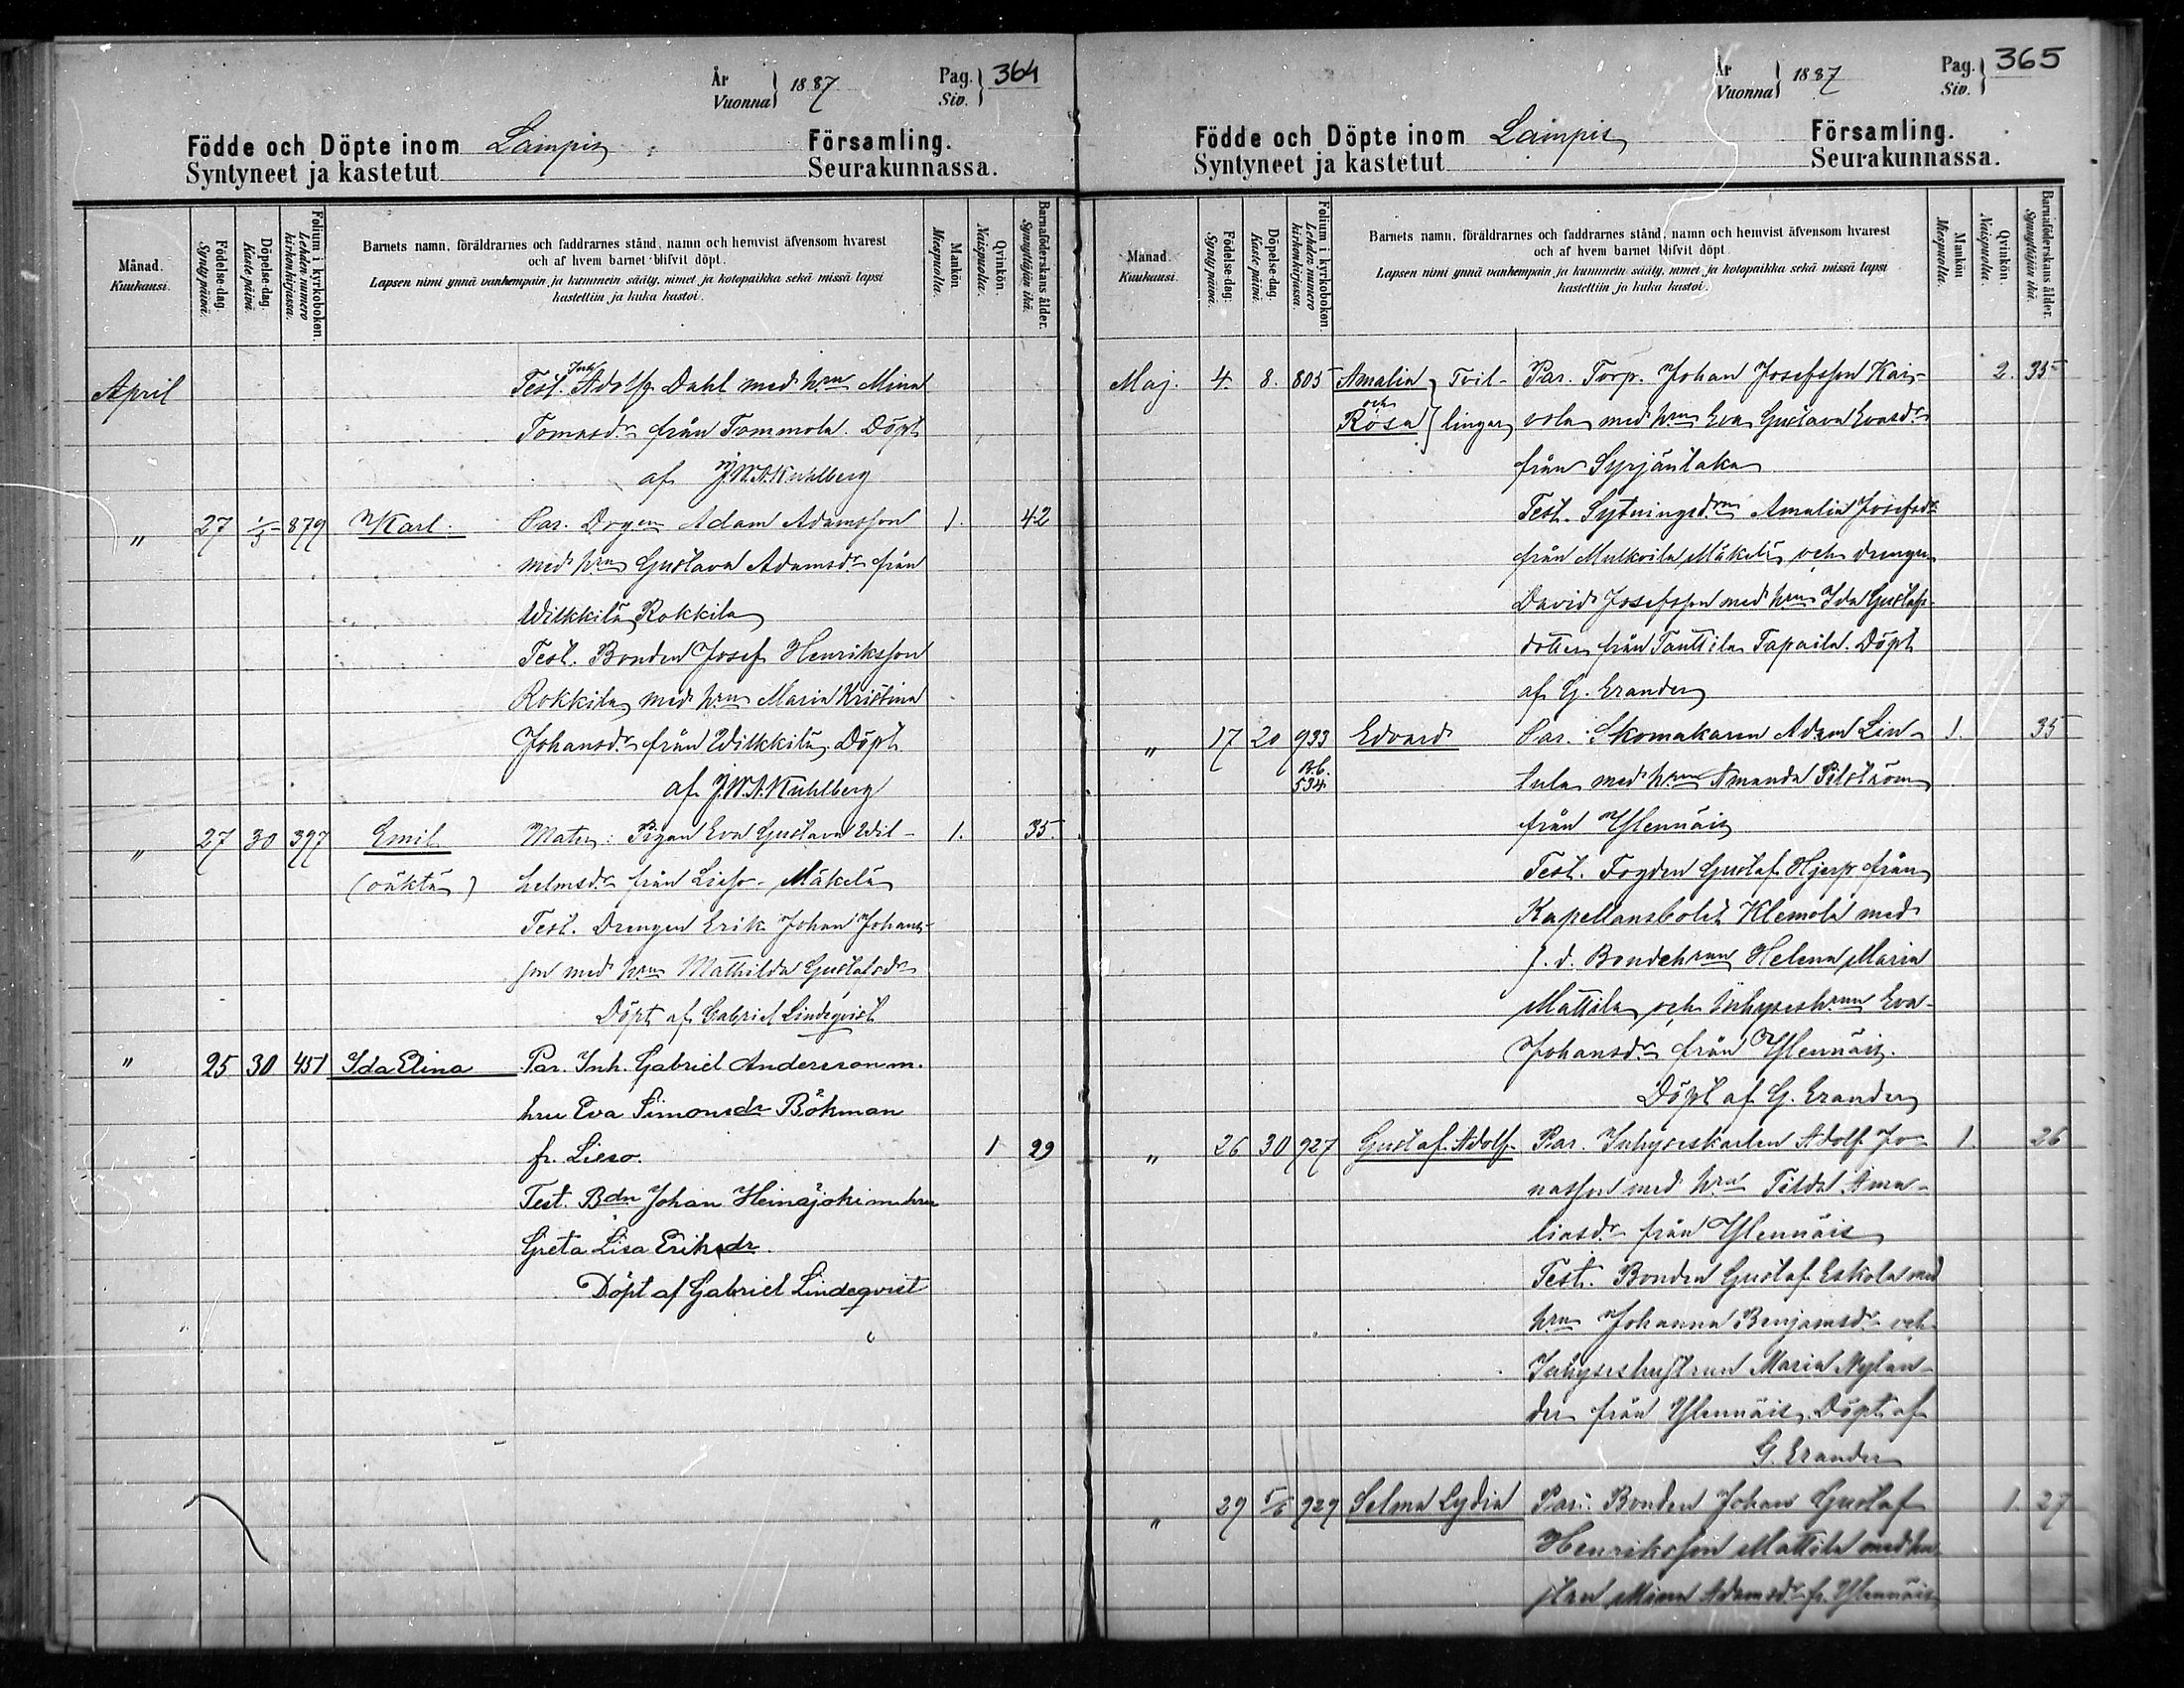 År
Vuonna 1887
Pag.
Siv. 364
Födde och Döpte inom Lampis Församling.
Syntyneet ja kastetut Seurakunnassa.
Månad.
Kuukausi.
Födelse-dag.
Syntypäivä.
Döpelse-dag.
Kastepäivä.
Folium i kyrkoboken.
Lehden numero kirkonkirjassa.
Barnets namn, föräldrarnes och faddrarnes stånd, namn och hemvist äfvensom hvarest
och af hvem barnet blifvit döpt.
Lapsen nimi ynnä vanhempain ja kummein sääty, nimet ja kotopaikka sekä missä lapsi
kastettiin ja kuka kastoi.
Mankön.
Miespuolia.
Qvinkön.
Naispuolia.
Barnaföderskans ålder.
Synnyttäjän ikä.
April Test. Inh. Adolf Dahl med hru Mina
Tomasdr från Tommola. Döpt
af J.W.A. Kuhlberg
" 27 1/5 879 Karl. Par. Drgen Adam Adamsson 1. 42
med hru Gustava Adamsdr från
Wilkkilä Rokkila
Test. Bonden Josef Henriksson
Rokkila med hru Maria Kristina
Johansdr från Wilkkilä. Döpt
af J.W.A. Kuhlberg
" 27 30 397 Emil Mater: Pigan Eva Gustava Wil- 1. 35.
(oäkta) helmsdr från Lieso Mäkelä
Test. Drengen Erik Johan Johans-
son med hru Mathilda Gustafsdr
Döpt af Gabriel Lindeqvist
" 25 30 451 Ida Elina Par. Inh. Gabriel Andersson m.
hru Eva Simonsdr Bökman
fr. Lieso. 1 29
Test. Bdn Johan Heinäjoki m hru
Greta Lisa Eriksdr.
Döpt af Gabriel Lindeqvist
År
Vuonna 1887
Pag.
Siv. 365
Födde och Döpte inom Lampis Församling.
Syntyneet ja kastetut Seurakunnassa.
Månad.
Kuukausi.
Födelse-dag.
Syntypäivä.
Döpelse-dag.
Kastepäivä.
Folium i kyrkoboken.
Lehden numero kirkonkirjassa.
Barnets namn, föräldrarnes och faddrarnes stånd, namn och hemvist äfvensom hvarest
och af hvem barnet blifvit döpt.
Lapsen nimi ynnä vanhempain ja kummein sääty, nimet ja kotopaikka sekä missä lapsi
kastettiin ja kuka kastoi.
Mankön.
Miespuolia.
Qvinkön.
Naispuolia.
Barnaföderskans ålder.
Synnyttäjän ikä.
Maj. 4 8. 805 Amalia Tvil- Par. Torp. Johan Josefsson Kai- 2. 35
och Rosa lingar vola med hru Eva Gustava Evasdr
från Syrjäntaka
Test. Sytningsd. Amalia Josefsdr
från Mulkoila Mäkelä och drengen
David Josefsson med hru Ida Gustafs-
dotter från Tanttila Tapaila. Döpt
af G. Erander
" 17 20 933 Edvard Par. Skomakaren Adam Lin- 1. 35
N.b. 534 tula med hru Amanda Pilström
från Ylennäis
Test. Fogden Gustaf Hjerp från
Kapellansbolet Klemola med
f.d. Bondehrun Helena Maria
Mattila och Inhyseshrun Eva
Johansdr från Ylennäis.
Döpt af G. Erander
" 26 30 927 Gustaf Adolf Par. Inhyseskarlen Adolf Jo- 1. 26
nasson med hru Tilda Ama-
liasdr från Ylennäis
Test. Bonden Gustaf Eskola med
hru Johanna Benjamsdr och
Inhyseshustrun Maria Nylan-
der från Ylennäis. Döpt af
G. Erander
" 29 5/6 929 Selma Lydia Par: Bonden Johan Gustaf 1. 27
Henriksson Mattila med hu-
stru Mina Adamsdr fr. Ylennäis